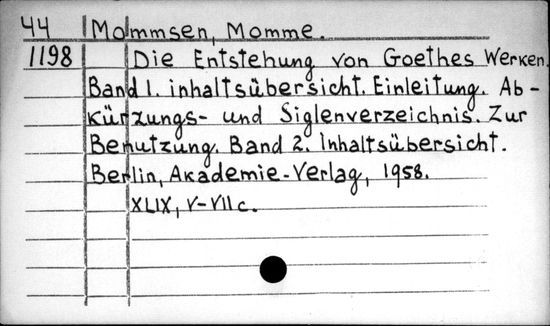 44 Mommsen, Momme.
1198 Die Entstehung von Goethes Werken.
Band 1. inhaltsübersicht. Einleitung. Ab-
kürzungs- und Siglenverzeichnis. Zur
Benutzung. Band 2. Inhaltsübersicht.
Berlin, Akademie-Verlag, 1958.
XLIX, V-VII c.